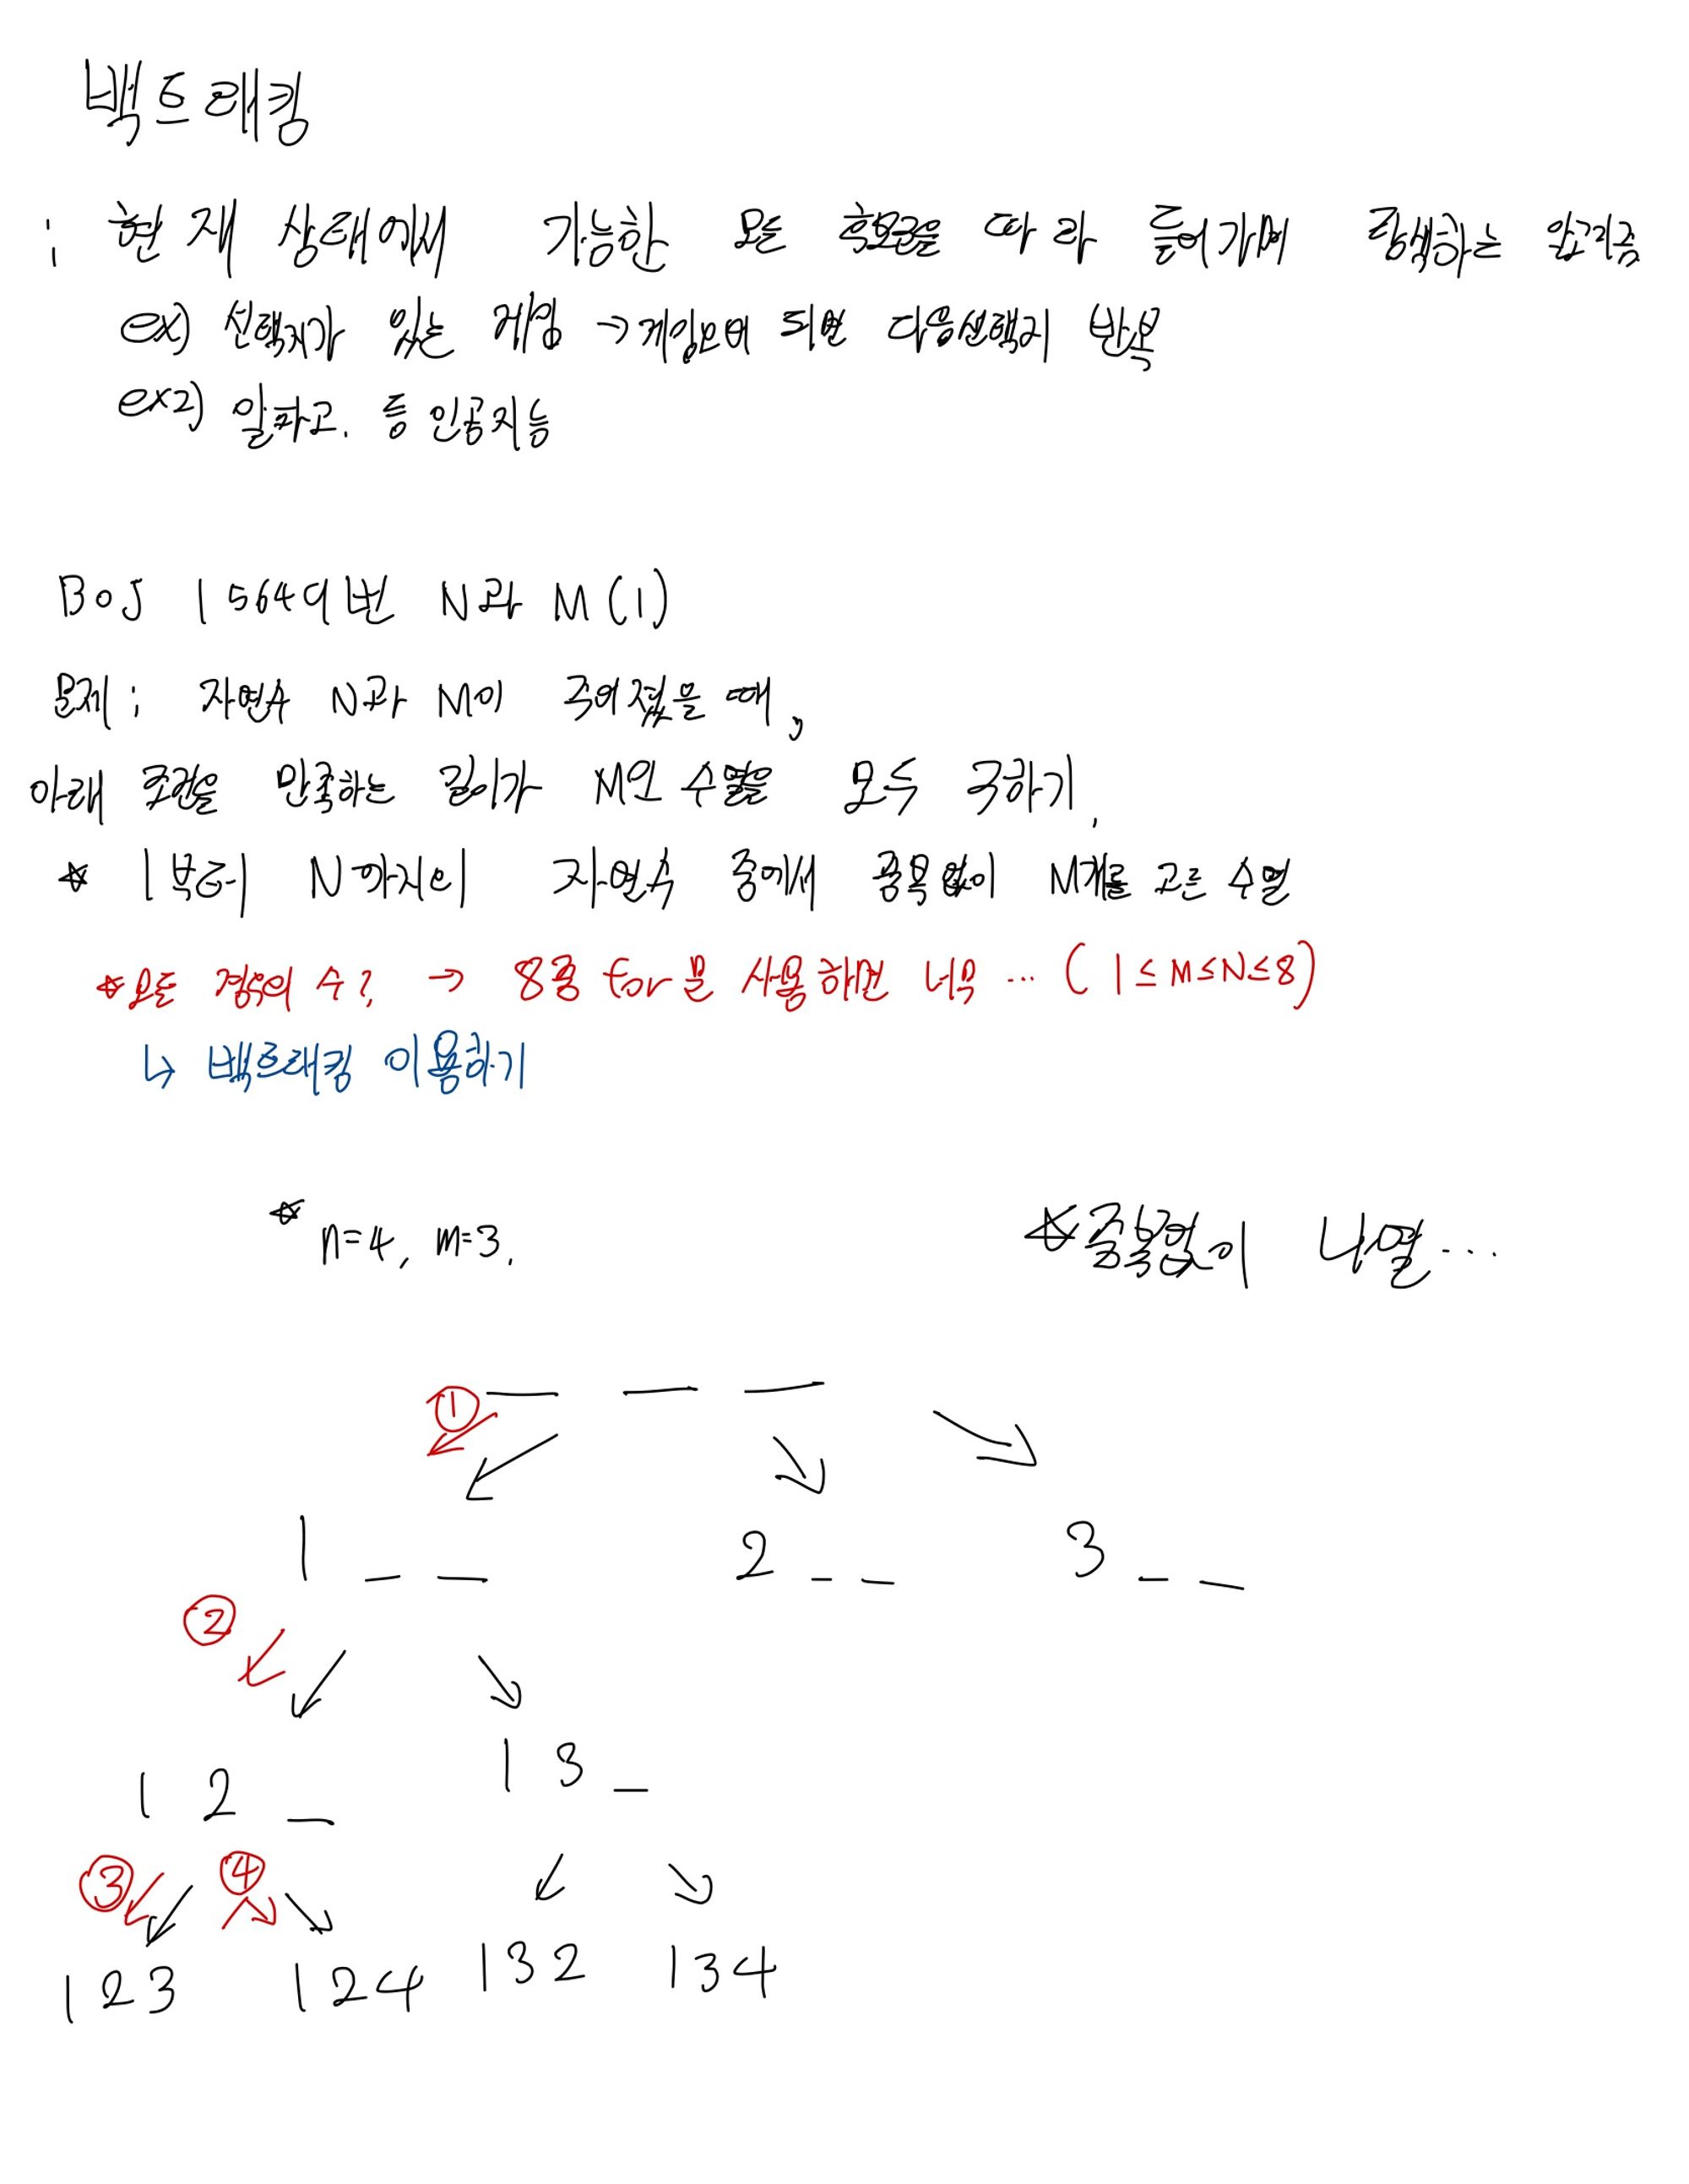 백트래킹
; 현재 상태에서 가능한 모든 후보군을 따라 들어가며 탐색하는 알고리즘
ex) 선택지가 있는 게임 → 게임오버 되면 다음선택지 반복
ex2) 알파고. 등 인공지능
BOJ 15649번 N과 M(1)
문제; 자연수 N과 M이 주어졌을 때,
아래 조건을 만족하는 길이가 M인 수열을 모두 구하기.
☆ 1부터 N까지의 자연수 중에서 중복없이 M개를 고른 수열
☆모든 경우의 수? → 8중 for문 사용하면 너무 ... (1≤M≤N≤8)
↳ 백트래킹 이용하기
☆ n=4, m=3.
☆중복없이 나열...
① _ _ _
1 _ _ 2 _ _ 3 _ _
②
1 2 _ 1 3 _
③ ④
123 124 132 134